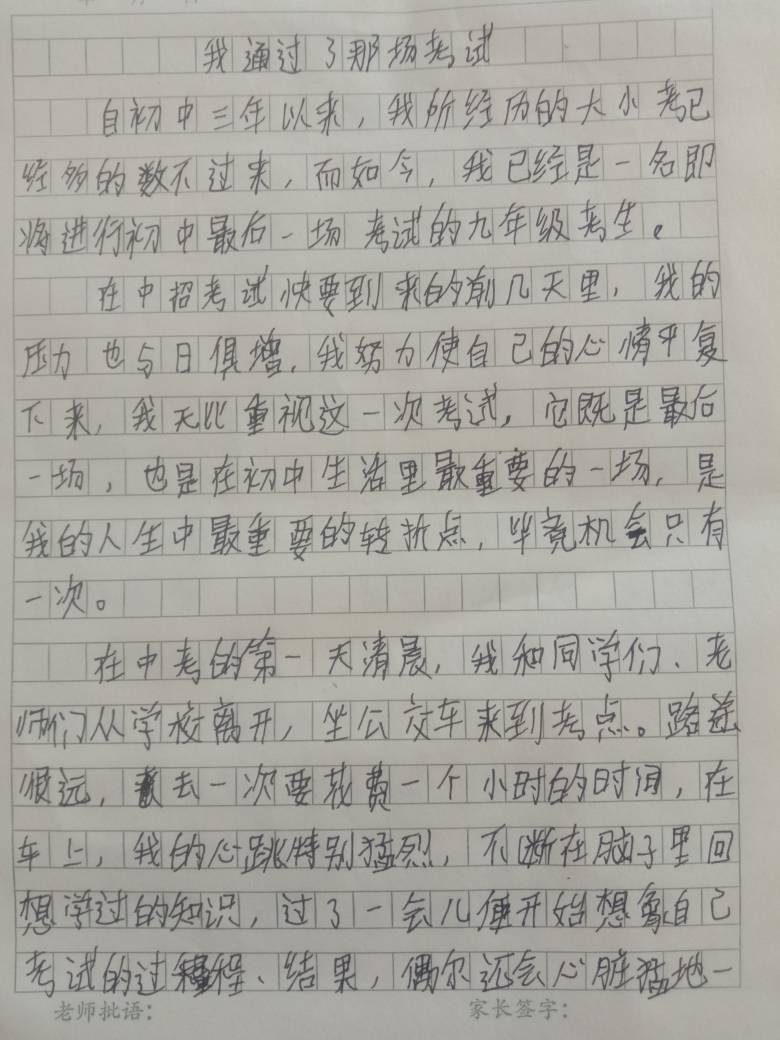 我通过了那场考试
自初中三年以来，我所经历的大小考已
经多的数不过来，而如今，我已经是一名即
将进行初中最后一场考试的九年级考生。
在中招考试快要到来的前几天里，我的
压力也与日俱增，我努力使自己的心情平复
下来，我无比重视这一次考试，它既是最后
一场，也是在初中生活里最重要的一场，是
我的人生中最重要的转折点，毕竟机会只有
一次。
在中考的第一天清晨，我和同学们、老
师们从学校离开，坐公交车来到考点。路途
很远，去一次要花费一个小时的时间，在
车上，我的心跳特别猛烈，不断在脑子里回
想学过的知识，过了一会儿便开始想象自己
考试的过程、结果，偶尔还会心脏猛地一
老师批语： 家长签字：